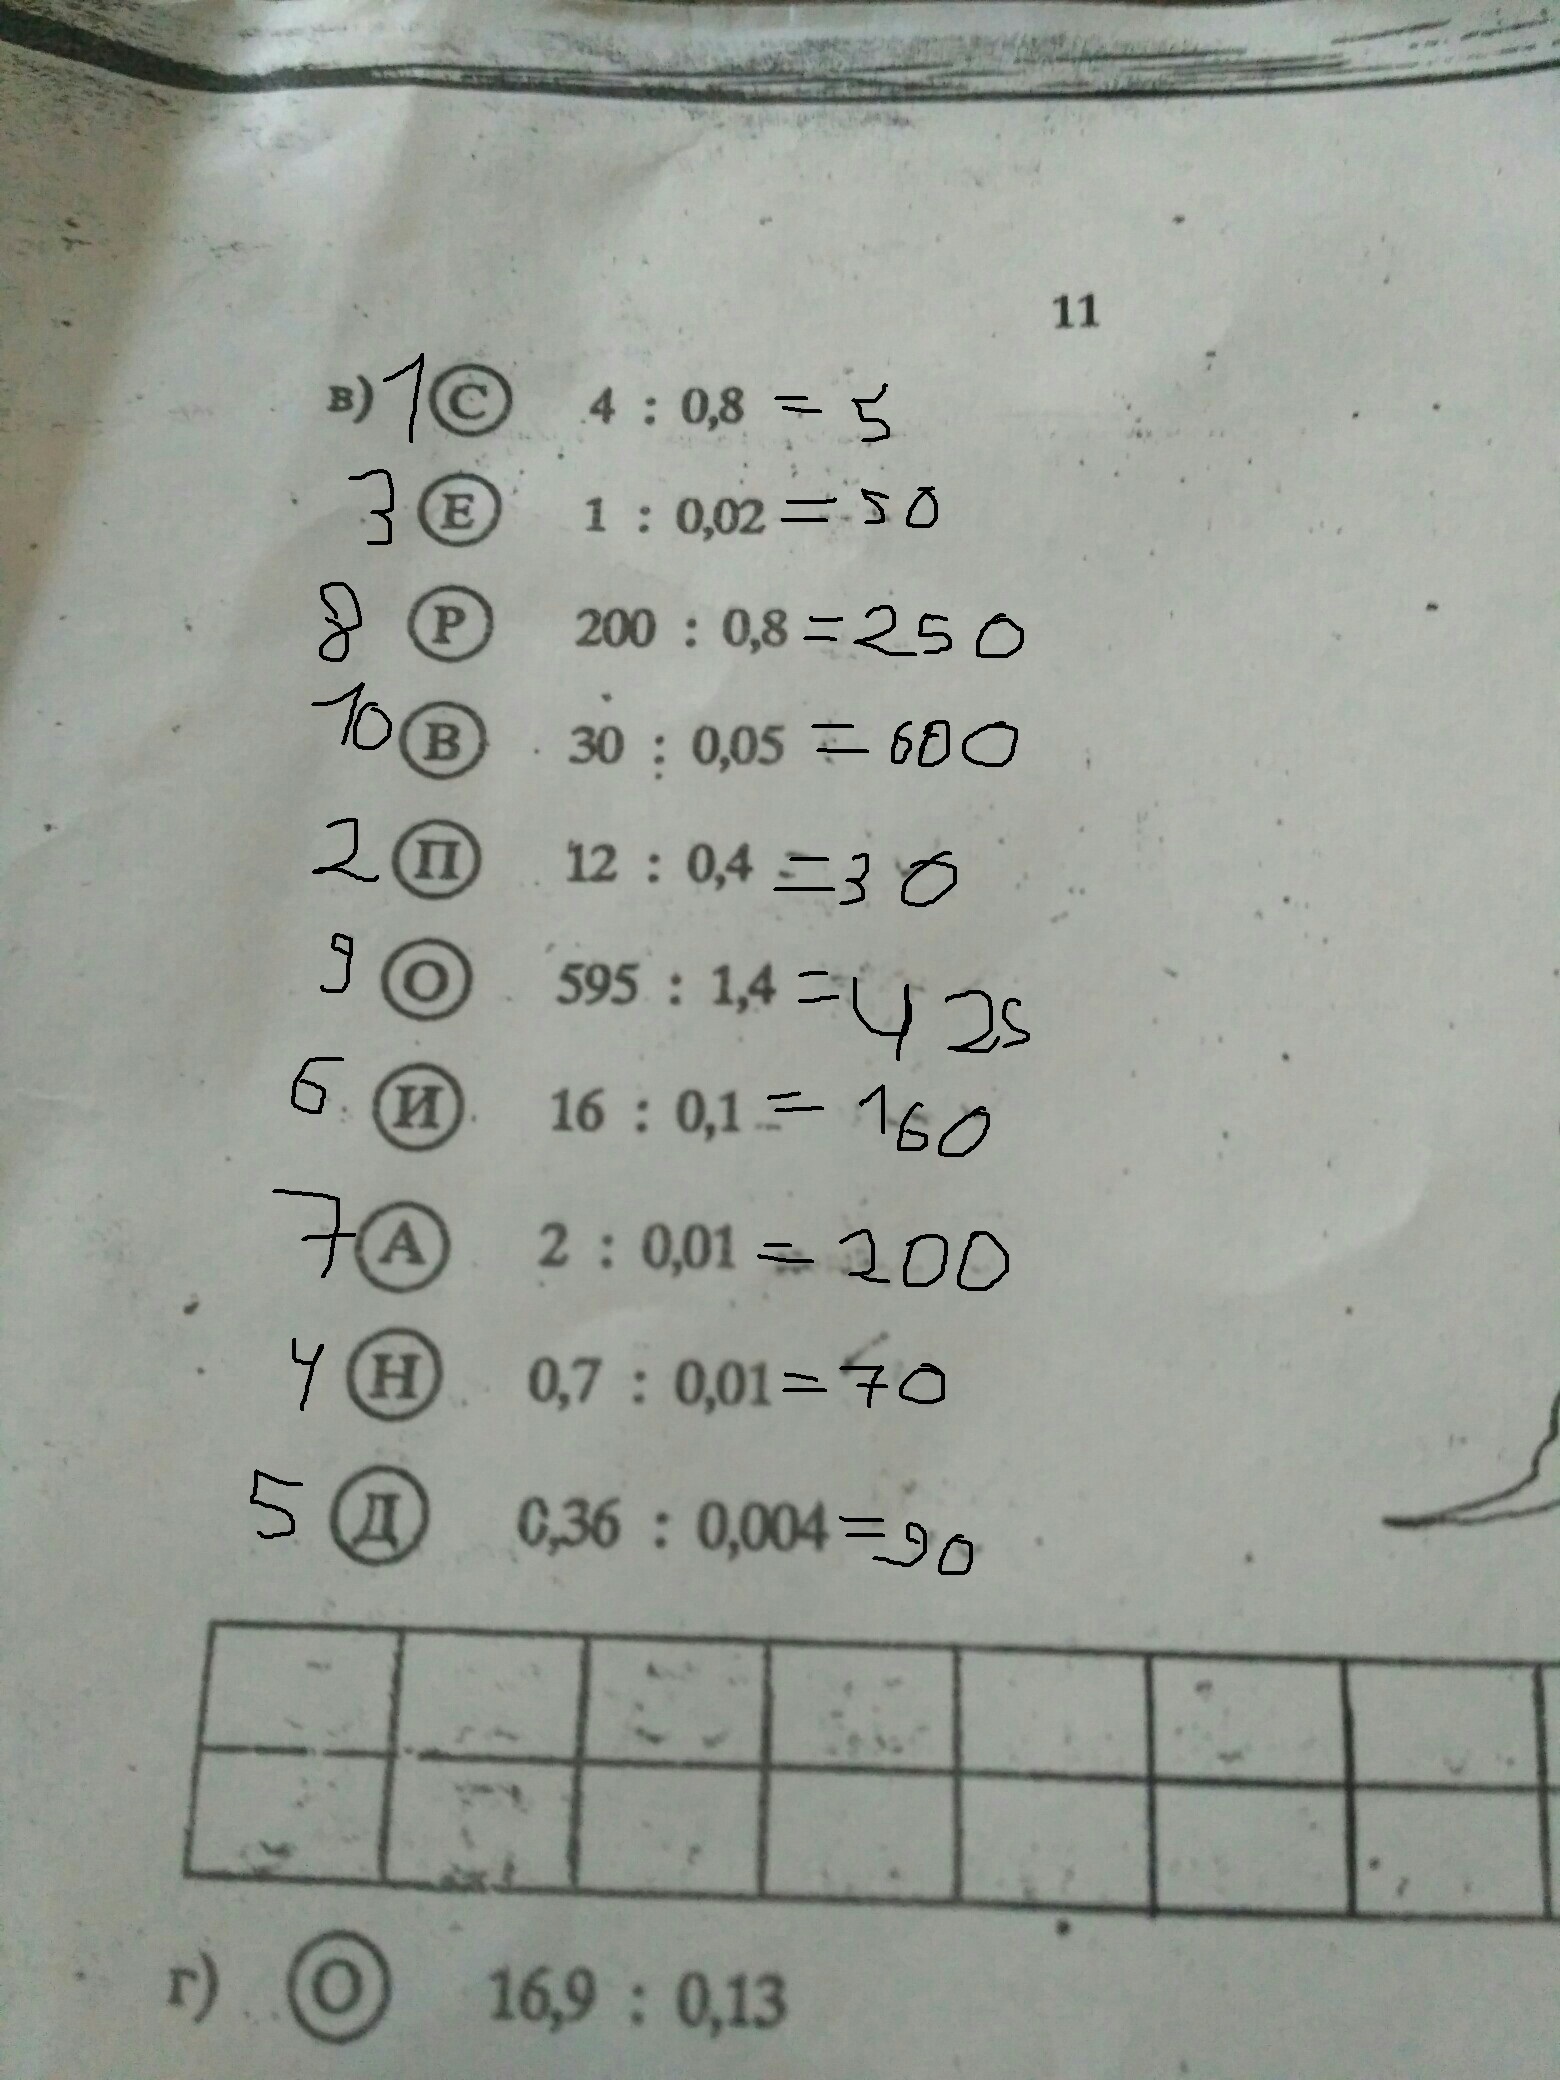 11
в) 1 С 4 : 0,8 = 5
3 Е 1 : 0,02 = 50
8 Р 200 : 0,8 = 250
10 В 30 : 0,05 = 600
2 П 12 : 0,4 = 30
9 О 595 : 1,4 = 425
6 И 16 : 0,1 = 160
7 А 2 : 0,01 = 200
4 Н 0,7 : 0,01 = 70
5 Д 0,36 : 0,004 = 90
г) О 16,9 : 0,13